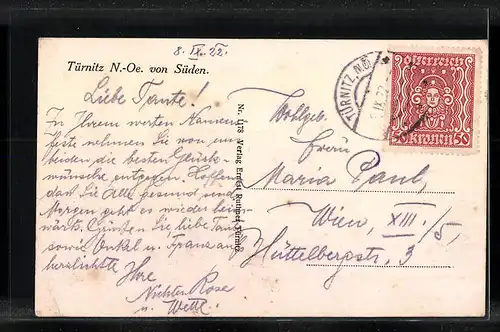 8. IX. 22.
Türnitz N.-Oe. von Süden.
Liebe Tante!
In Ihrem werten Namens
feste nehmen Sie von uns
beiden die besten Glück-
wünsche entgegen. Hoffend
das Sie Alle gesund sind
Morgen geht es wieder heim
wärts. Grüßen Sie liebe Tante
sowie Onkel u. Franz auf
herzlichste Ihre
Nichten Rose
u. Wetti.
Nr. 1178 Verlag Ernst Buttner, Türnitz
Wohlgeb.
Frau
Maria Paul,
Wien, XIII./5,
Hüttelbergstr. 3
TÜRNITZ, N.Ö.
IX. 22
Österreich
50 Kronen 50